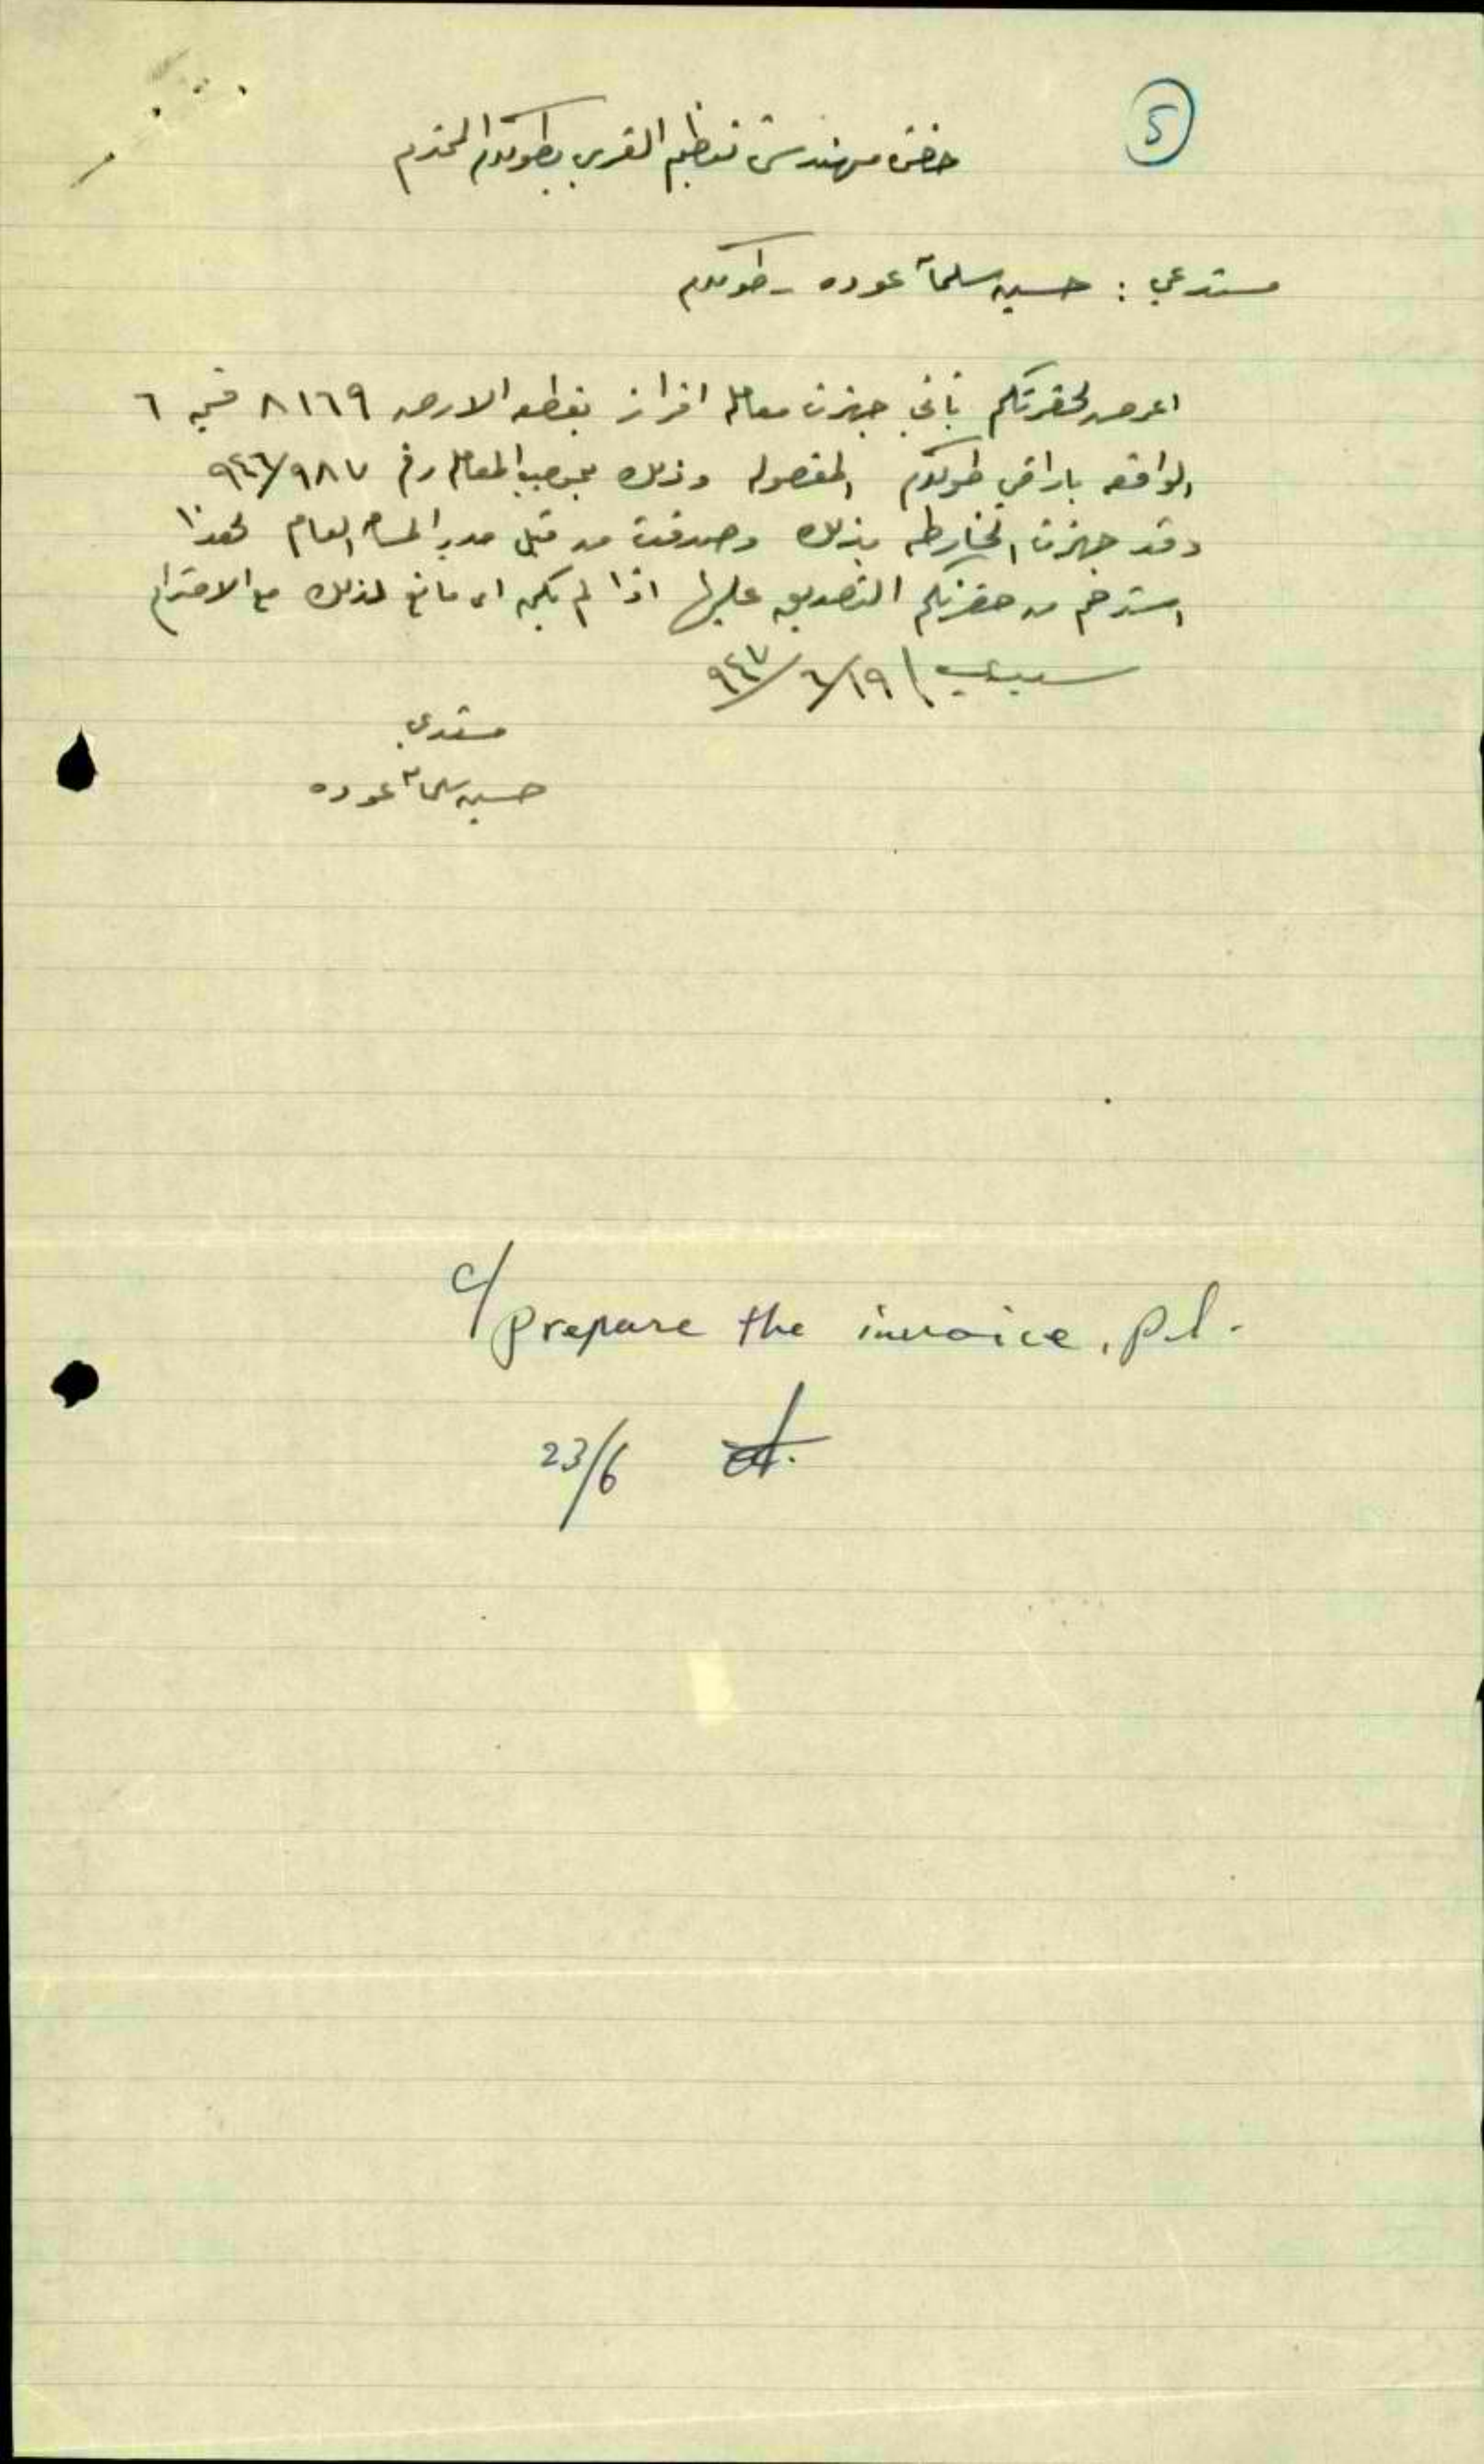 5
حضرة مهندس تنظيم القرى بطولكرم المحترم
مستدعي : حسين سلمان عوده - طولكرم
اعرض لحضرتكم بأني جهزت معاملة افراز بقطعه الارض ٨١٦٩ قسيمه ٦
الواقعه باراضي طولكرم المفصوله وذلك بموجب المعامله رقم ٩٨٧/٩٤٦
وقد جهزت الخارطه بذلك وصدقت من قبل مدير المساحه العام لهذا
استرحم من حضرتكم التصديق عليها اذا لم يكن اي مانع لذلك مع الاحترام
١٩/٦/٩٤٧
مستدعي
حسين سلمان عوده
c/
prepare the invoice, pl.
23/6